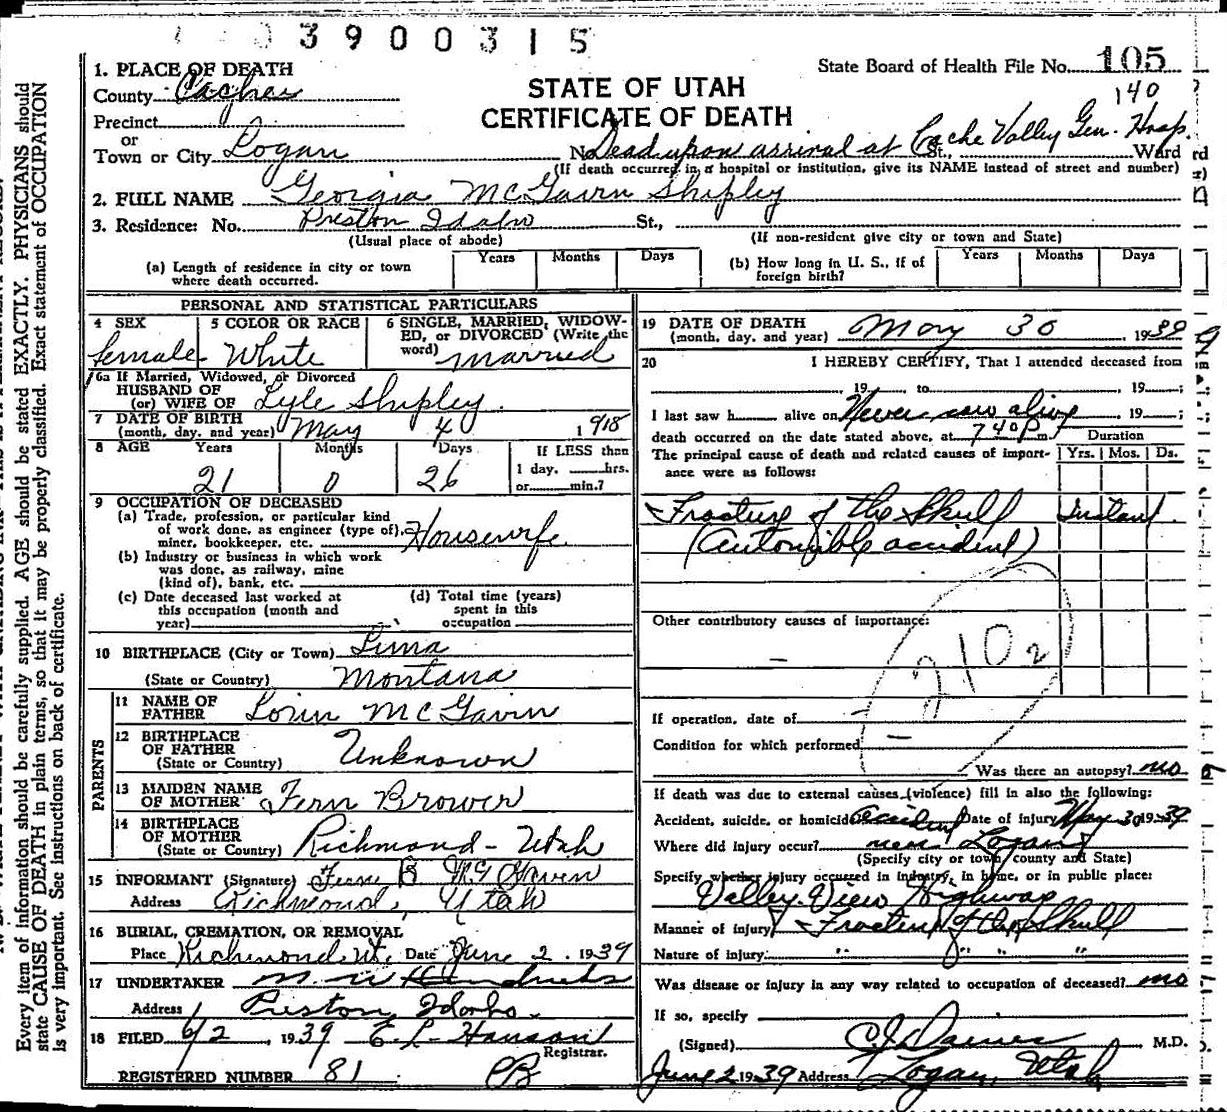 3900315
State Board of Health File No. 105
140
STATE OF UTAH
CERTIFICATE OF DEATH
1. PLACE OF DEATH
County Cache
Precinct
or
Town or City Logan No. Dead upon arrival at Cache Valley Gen. Hosp. St., Ward
(If death occurred in a hospital or institution, give its NAME instead of street and number)
2. FULL NAME Georgia McGavin Shipley
3. Residence: No. Preston Idaho St.,
(Usual place of abode) (If non-resident give city or town and State)
(a) Length of residence in city or town where death occurred. Years Months Days
(b) How long in U. S., if of foreign birth? Years Months Days
PERSONAL AND STATISTICAL PARTICULARS
4 SEX female
5 COLOR OR RACE White
6 SINGLE, MARRIED, WIDOWED, or DIVORCED (Write the word) married
6a If Married, Widowed, or Divorced
HUSBAND OF
(or) WIFE OF Lyle Shipley
7 DATE OF BIRTH
(month, day, and year) May 4 1918
8 AGE Years 21 Months 0 Days 26
If LESS than
1 day. hrs.
or min.?
9 OCCUPATION OF DECEASED
(a) Trade, profession, or particular kind
of work done, as engineer (type of),
miner, bookkeeper, etc. Housewife
(b) Industry or business in which work
was done, as railway, mine
(kind of), bank, etc.
(c) Date deceased last worked at
this occupation (month and
year)
(d) Total time (years)
spent in this
occupation
10 BIRTHPLACE (City or Town) Lima
(State or Country) Montana
PARENTS
11 NAME OF
FATHER Lorin McGavin
12 BIRTHPLACE
OF FATHER
(State or Country) Unknown
13 MAIDEN NAME
OF MOTHER Fern Brower
14 BIRTHPLACE
OF MOTHER
(State or Country) Richmond - Utah
15 INFORMANT (Signature) Fern B McGavin
Address Richmond, Utah
16 BURIAL, CREMATION, OR REMOVAL
Place Richmond, Ut. Date June 2 1939
17 UNDERTAKER M. W Hendricks
Address Preston, Idaho.
18 FILED 6/2, 1939 E. L. Hanson
Registrar.
REGISTERED NUMBER 81
19 DATE OF DEATH
(month, day, and year) May 30, 1939
20 I HEREBY CERTIFY, That I attended deceased from
19 to 19 ;
I last saw h alive on Never saw alive, 19 ;
death occurred on the date stated above, at 7 40 P m. Duration
The principal cause of death and related causes of importance were as follows: Yrs. Mos. Ds.
Fracture of the Skull Instant.
(Automobile accident)
Other contributory causes of importance:
2102
If operation, date of
Condition for which performed
Was there an autopsy? no
If death was due to external causes (violence) fill in also the following:
Accident, suicide, or homicide accident Date of injury May 30 1939
Where did injury occur? near Logan
(Specify city or town, county and State)
Specify whether injury occurred in industry, in home, or in public place:
Valley View Highway
Manner of injury Fracture of the Skull
Nature of injury " " " "
Was disease or injury in any way related to occupation of deceased? no
If so, specify
(Signed) C. J. Daines M.D.
June 2 1939 Address Logan, Utah
Every item of information should be carefully supplied. AGE should be stated EXACTLY. PHYSICIANS should
state CAUSE OF DEATH in plain terms, so that it may be properly classified. Exact statement of OCCUPATION
is very important. See instructions on back of certificate.